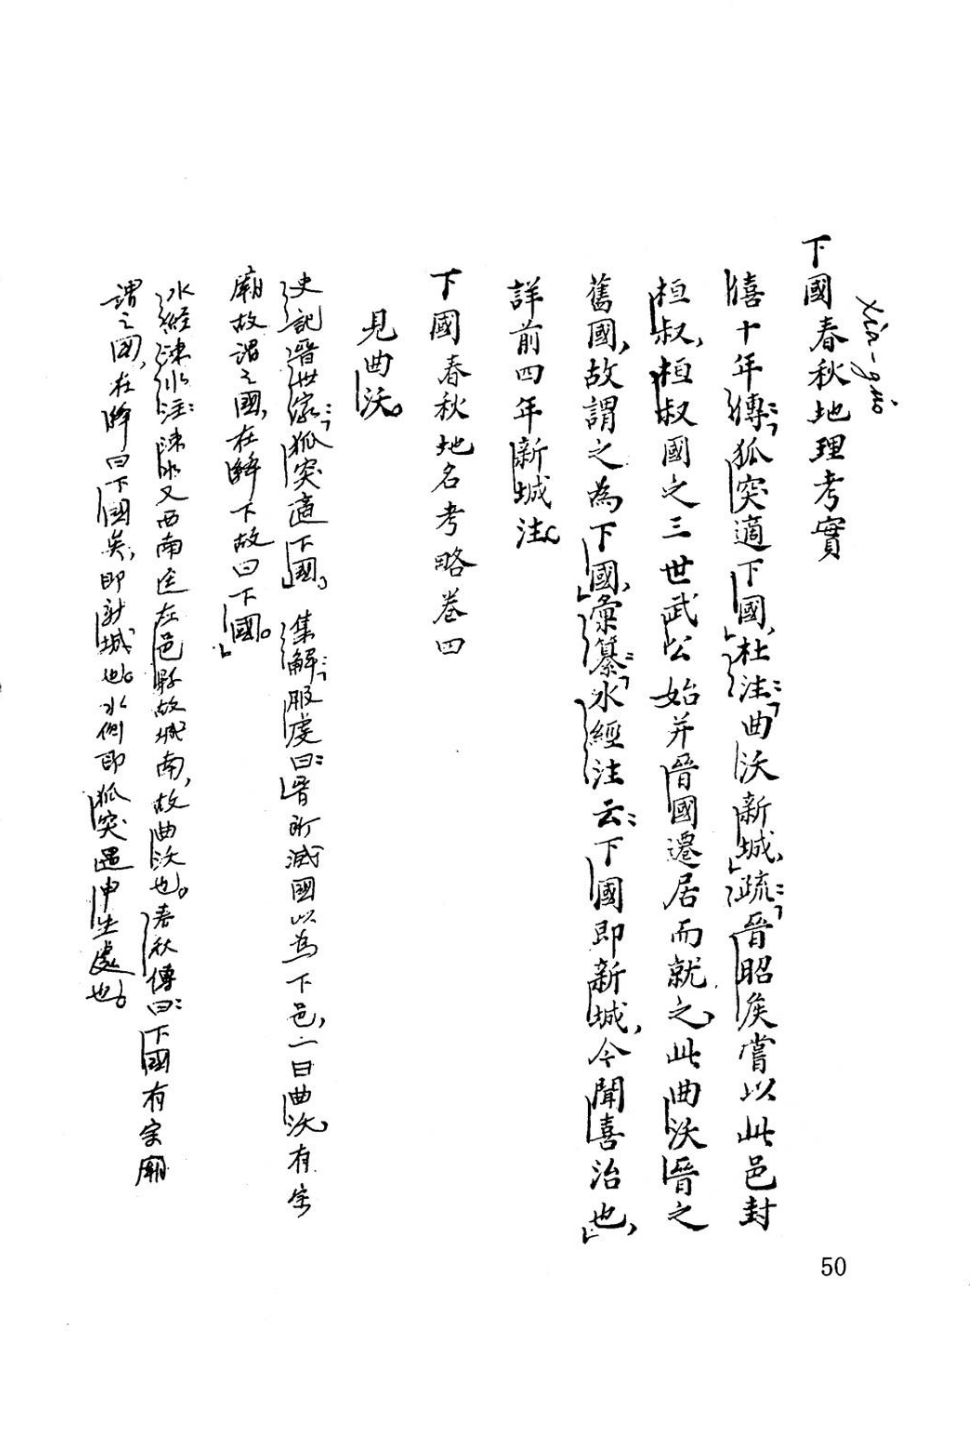 xià-guó
下國春秋地理考實
僖十年傳:「狐突適下國」,杜注:「曲沃新城」,疏:「晉昭侯嘗以此邑封
桓叔,桓叔國之三世武公始并晉國遷居而就之,此曲沃晉之
舊國,故謂之為下國」,彙纂:「水經注云:下國即新城,今聞喜治也」,
詳前四年新城注。
下國春秋地名考略卷四
見曲沃。
史記晉世家:「狐突適下國」,集解:「服虔曰:晉所滅國以為下邑,一曰曲沃有宗
廟故謂之國,在絳下故曰下國。」
水經涑水注:涑水又西南逕左邑縣故城南,故曲沃也。春秋傳曰:下國有宗廟
謂之國,在絳曰下國矣,即新城也。水側即狐突遇申生處也。